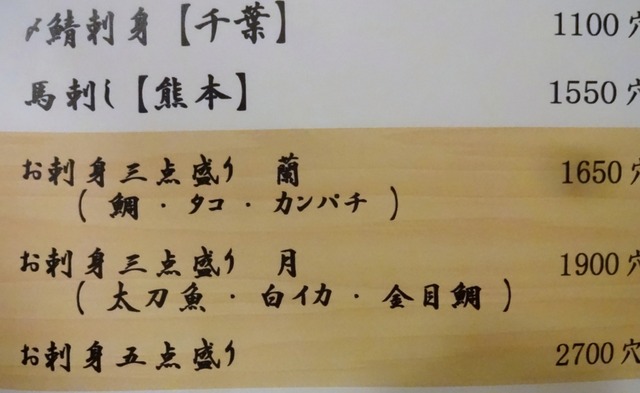 〆鯖刺身【千葉】 1100穴
馬刺し【熊本】 1550穴
お刺身三点盛り 蘭 1650穴
（鯛・タコ・カンパチ）
お刺身三点盛り 月 1900穴
（太刀魚・白イカ・金目鯛）
お刺身五点盛り 2700穴